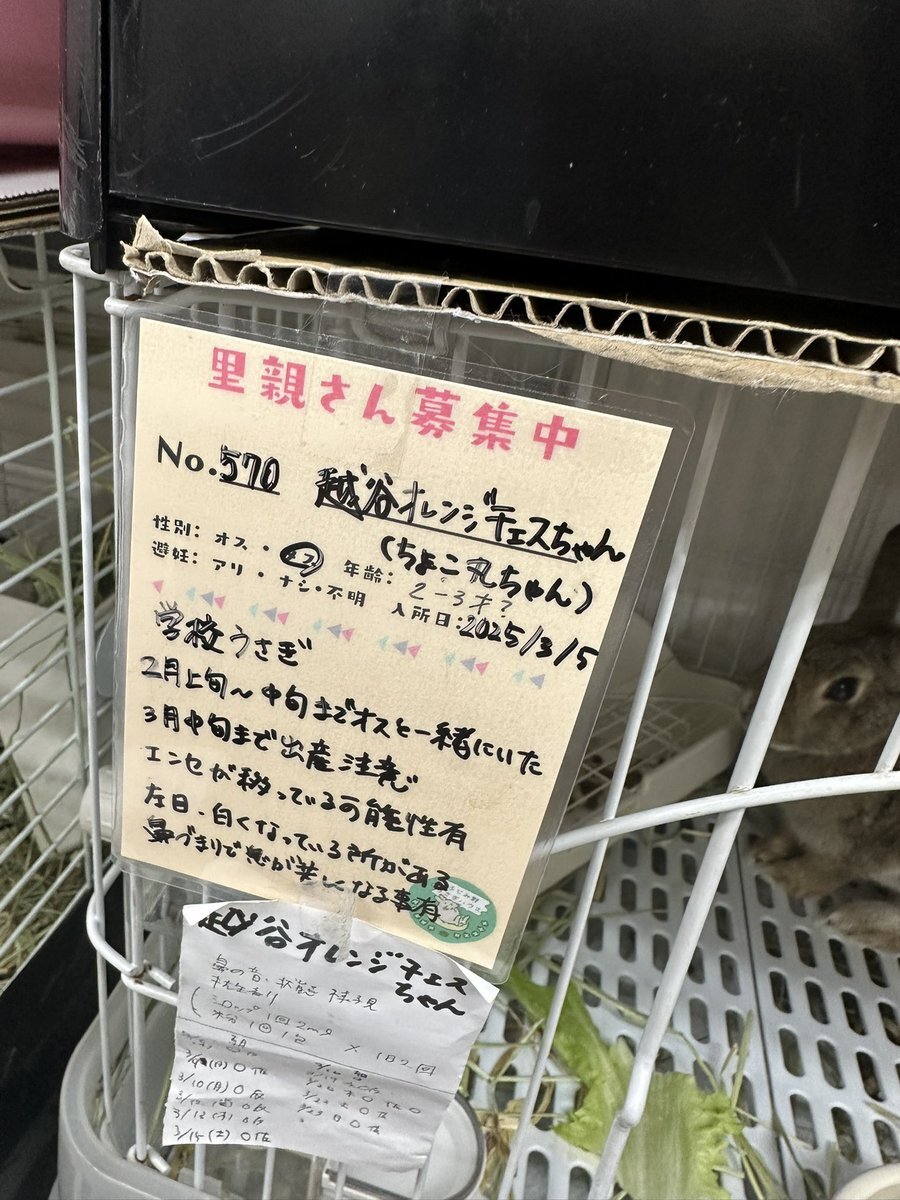 里親さん募集中
No.570 越谷オレンジチェスちゃん
(ちょこ丸ちゃん)
性別: オス・メス 年齢: 2-3才?
避妊: アリ・ナシ・不明 入所日: 2025/3/5
学校うさぎ
2月上旬〜中旬までオスと一緒にいた
3月中旬まで出産注意
エンセが移っている可能性有
左目、白くなっている所がある
鼻づまりで息が苦しくなる事有
越谷オレンジチェス
ちゃん
鼻の音、状態 様子見
シロップ 1回2ml
1回1包
× 1日2回
3/10(月)
3/15(土)